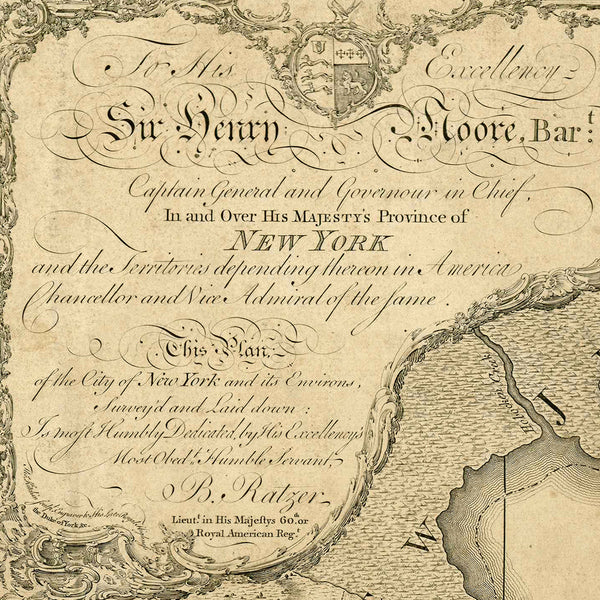 To His Excellency
Sir Henry Moore, Bar.t
Captain General and Governour in Chief,
In and Over His Majesty's Province of
NEW YORK
and the Territories depending thereon in America
Chancellor and Vice Admiral of the same.
This Plan
of the City of New York and its Environs,
Survey'd and Laid down:
Is most Humbly Dedicated, by His Excellency's
Most Obed.t Humble Servant,
B. Ratzer
Lieut.t in His Majestys 60.th or
Royal American Reg.t
Engraver to His late
the Duke of York &c.
J
W